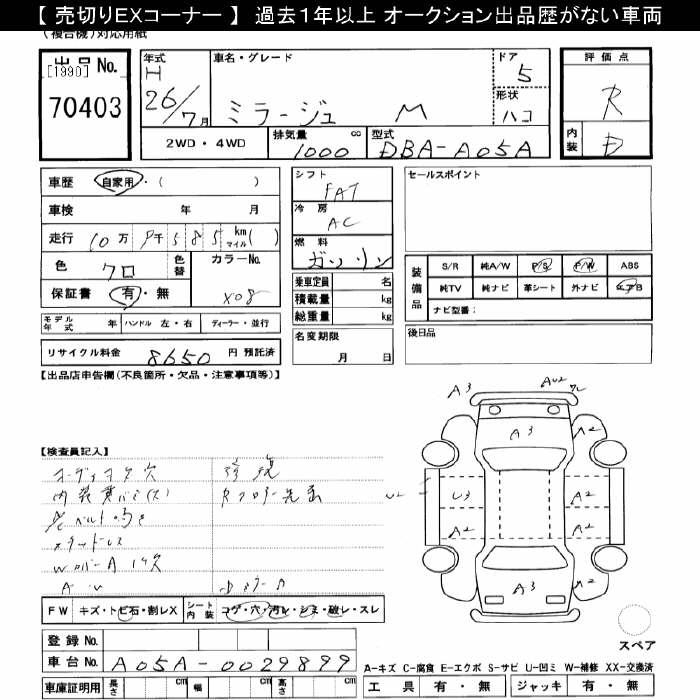 【 売切りEXコーナー 】 過去1年以上 オークション出品歴がない車両
（複合機）対応用紙
出品 No.
[1990]
70403
年式
H
26/7月
車名・グレード
ミラージュ M
ドア
5
形状
ハコ
評価点
R
内装
D
2WD・4WD
排気量 cc
1000
型式
DBA-A05A
車歴 自家用・（ ）
車検 年 月
走行 10万 9千 5 8 5 km マイル（ ）
色 クロ
色替
カラーNo.
X08
保証書 有・無
モデル年式 年 ハンドル 左・右 ディーラー・並行
リサイクル料金 8650 円 預託済
シフト
FAT
冷房
AC
燃料
ガソリン
乗車定員 名
積載量 kg
総重量 kg
名変期限
月 日
セールスポイント
装備品
S/R 純A/W P/S P/W ABS
純TV 純ナビ 革シート 外ナビ エアB
ナビ型番：
後日品
【出品店申告欄（不良箇所・欠品・注意事項等）】
【検査員記入】
修復
スタッドレス
FW キズ・トビ石・割レX
シート内装 コゲ・穴・汚レ・シミ・破レ・スレ
登録 No.
車台 No. A05A-0029899
車庫証明用 長さ cm 幅 cm 高さ cm
A3
AU2
A3
A2
U2
U3
A2
A2
A2
A3
A2
スペア
A-キズ C-腐食 E-エクボ S-サビ U-凹ミ W-補修 XX-交換済
工具 有・無 ジャッキ 有・無